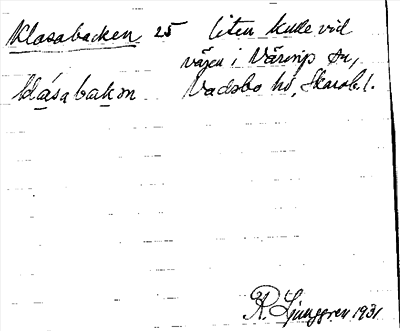 Klasabacken 25 liten kulle vid
vägen i Värsrp sn,
klása bakɷn Vadsbo hd, Skarab.l.
R. Ljunggren 1931